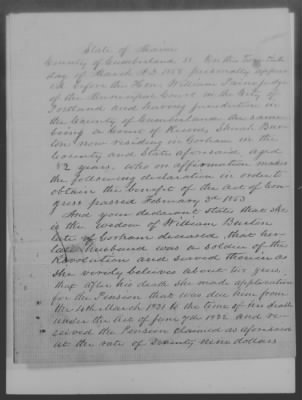 State of Maine
County of Cumberland SS. On this
day of March A.D. 1853 personally appear
ed before the Hon. William
of the Municipal Court in the City of
Portland and having jurisdiction in
the County of Cumberland the same
being a Court of Record, Sarah
now residing in Gorham in the
County and State aforesaid aged
82 years, who on affirmation makes
the following declaration in order to
obtain the benefit of the Act of Con-
gress passed February 3d 1853
And your declarant states that she
is the widow of William
late of Gorham deceased, that her
late Husband was a soldier of the
Revolution and served therein as
she verily believes about six years,
that after his death she made application
for the Pension that was due him from
the 4th March 1831 to the time of his death
under the Act of June 7th 1832 and re-
ceived the Pension claimed as aforesaid
at the rate of Seventy nine dollars